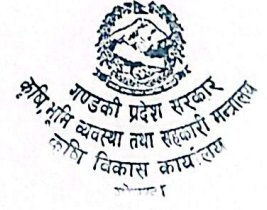 गण्डकी प्रदेश सरकार
कृषि, भूमि व्यवस्था तथा सहकारी मन्त्रालय
कृषि विकास कार्यालय